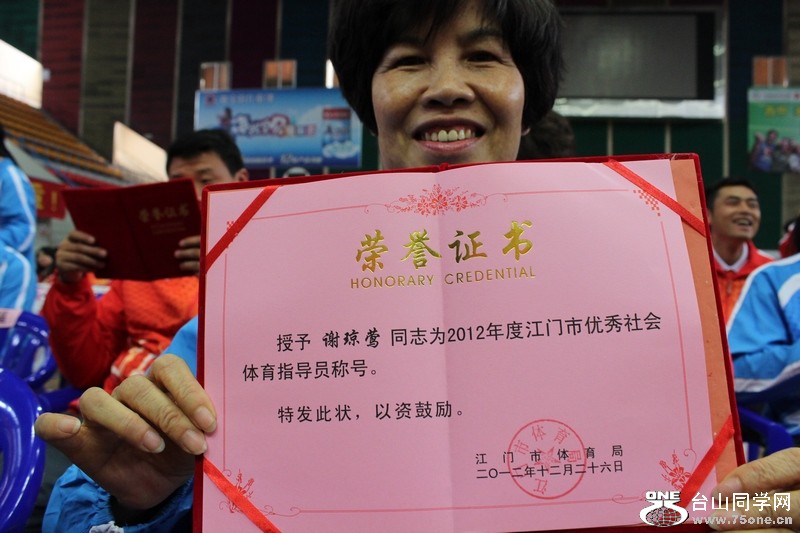 荣誉证书
荣誉证书
HONORARY CREDENTIAL
授予 谢琼莺 同志为2012年度江门市优秀社会
体育指导员称号。
特发此状，以资鼓励。
江门市体育局
二〇一二年十二月二十六日
ONE
台山同学网
www.75one.cn